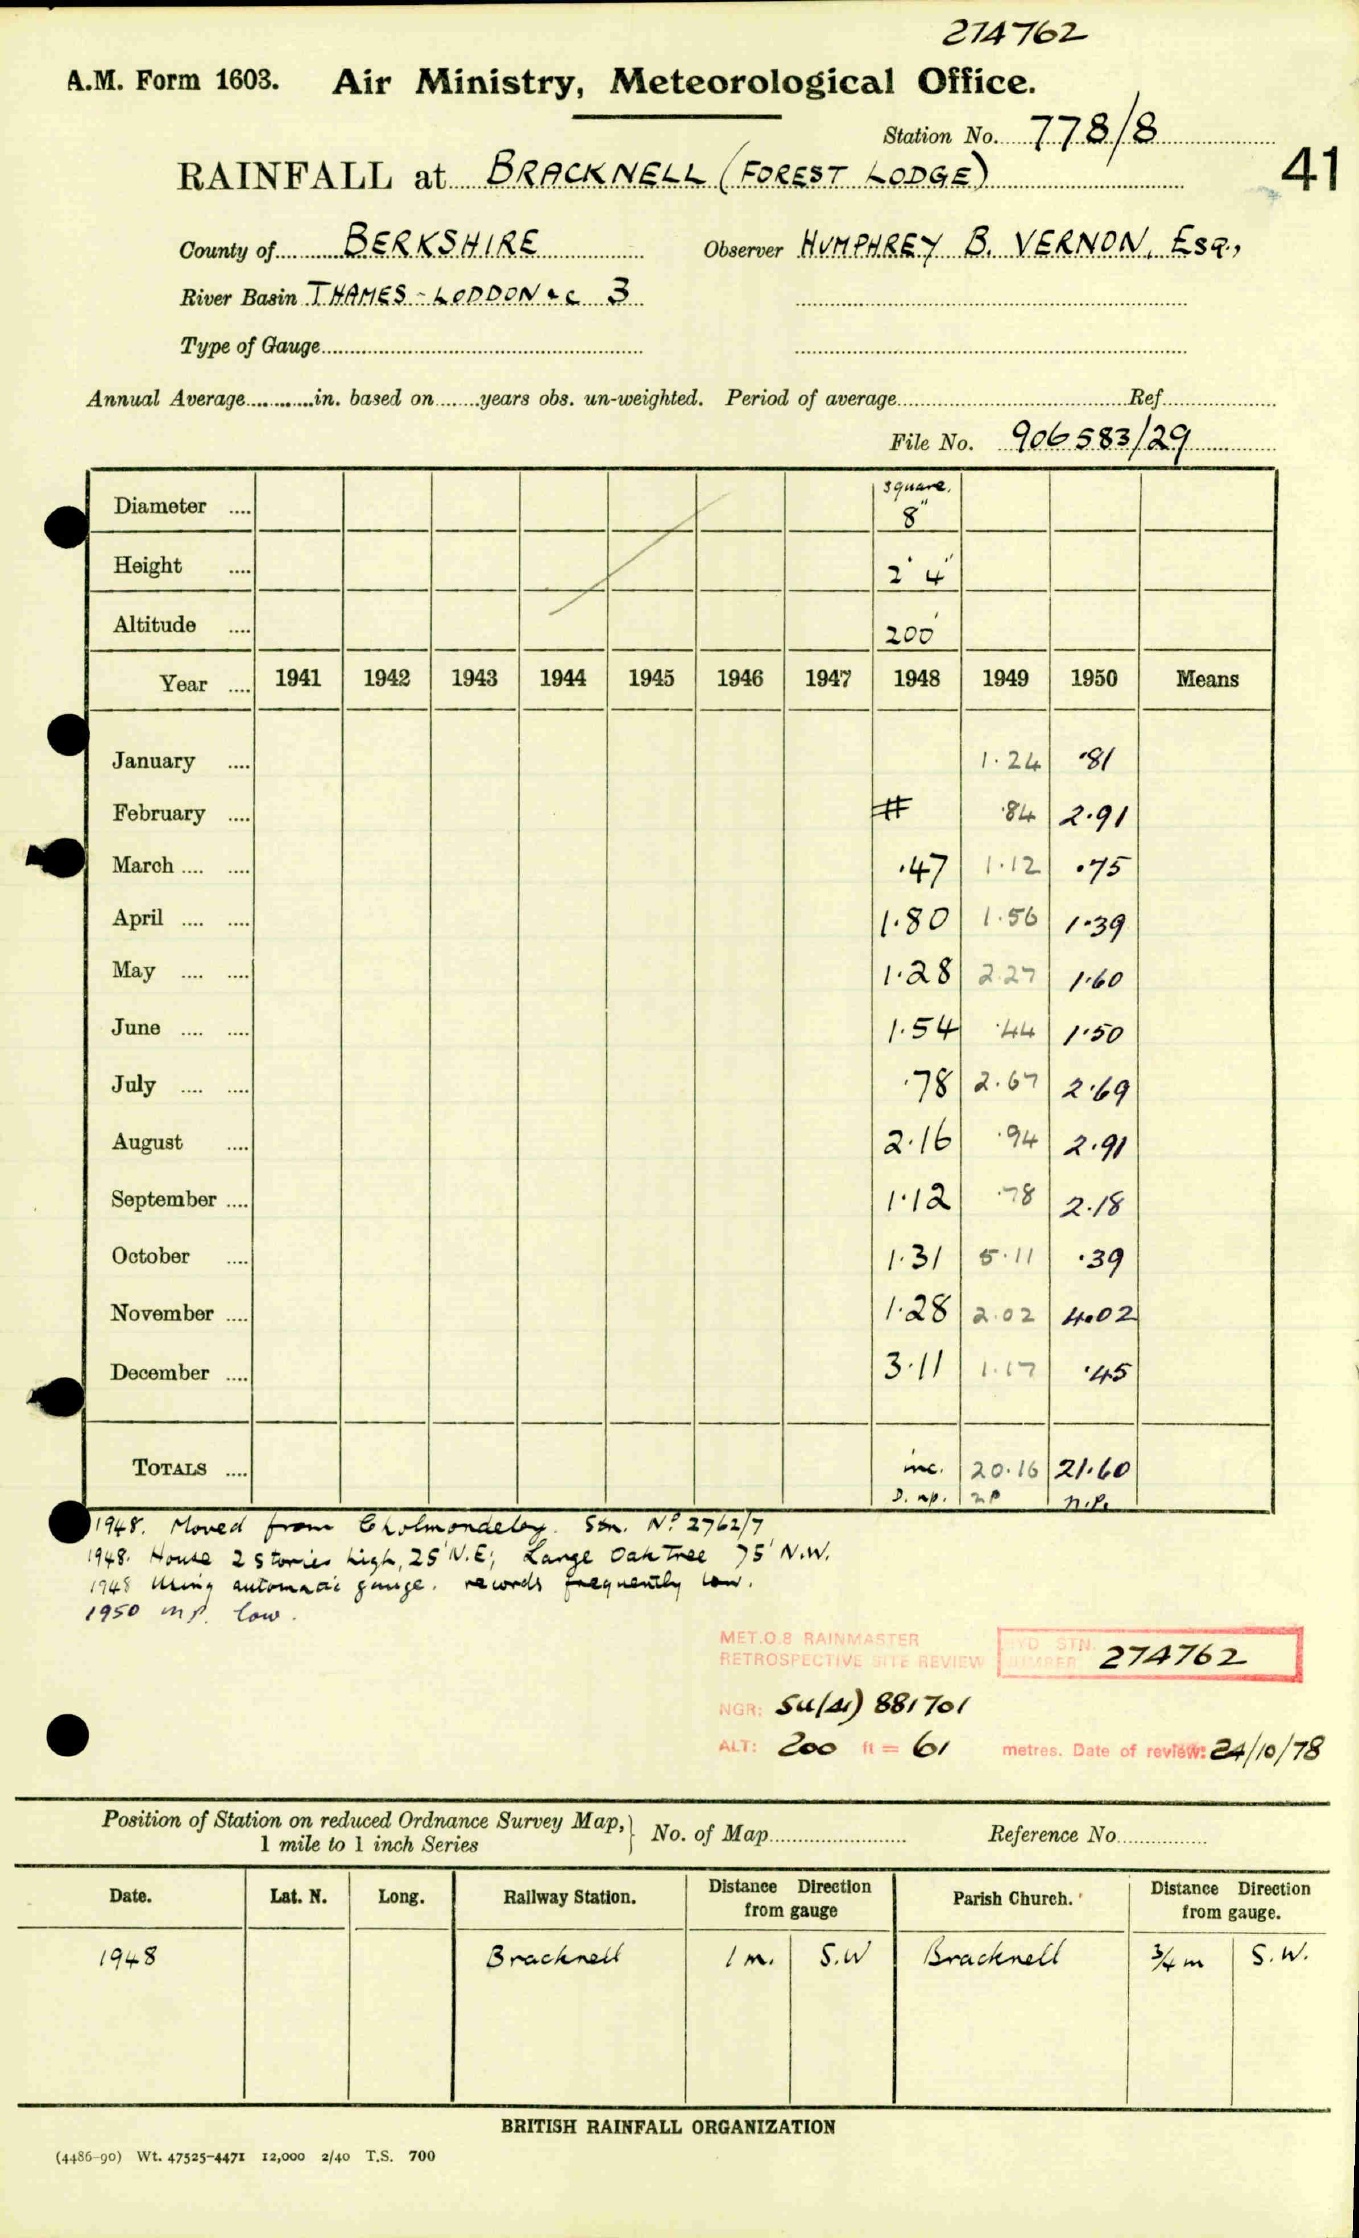 274762
A.M. Form 1603. Air Ministry, Meteorological Office.
Station No. 778/8
41
RAINFALL at BRACKNELL (FOREST LODGE)
County of BERKSHIRE Observer HUMPHREY B. VERNON, Esq.,
River Basin THAMES - LODDON &c 3
Type of Gauge
Annual Average in. based on years obs. un-weighted. Period of average Ref
File No. 906583/29
Diameter square. 8"
Height 2' 4"
Altitude 200'
Year 1941 1942 1943 1944 1945 1946 1947 1948 1949 1950 Means
January 1.24 .81
February # .84 2.91
March .47 1.12 .75
April 1.80 1.56 1.39
May 1.28 2.27 1.60
June 1.54 .44 1.50
July .78 2.67 2.69
August 2.16 .94 2.91
September 1.12 .78 2.18
October 1.31 5.11 .39
November 1.28 2.02 4.02
December 3.11 1.17 .45
TOTALS inc. 20.16 21.60
D. np. np n.p.
1948. Moved from Cholmondeley. Stn. No 2762/7
1948. House 2 stories high, 25' N.E; Large Oak Tree 75' N.W.
1948 Using automatic gauge. records frequently low.
1950 low.
MET.O.8 RAINMASTER
RETROSPECTIVE SITE REVIEW
HYD STN. NUMBER 274762
NGR: SU(41) 881701
ALT: 200 ft = 61 metres. Date of review: 24/10/78
Position of Station on reduced Ordnance Survey Map, 1 mile to 1 inch Series No. of Map Reference No
Date. Lat. N. Long. Railway Station. Distance Direction from gauge Parish Church. Distance Direction from gauge.
1948 Bracknell 1 m. S.W Bracknell 3/4 m S.W.
BRITISH RAINFALL ORGANIZATION
(4486-90) Wt. 47525-4471 12,000 2/40 T.S. 700